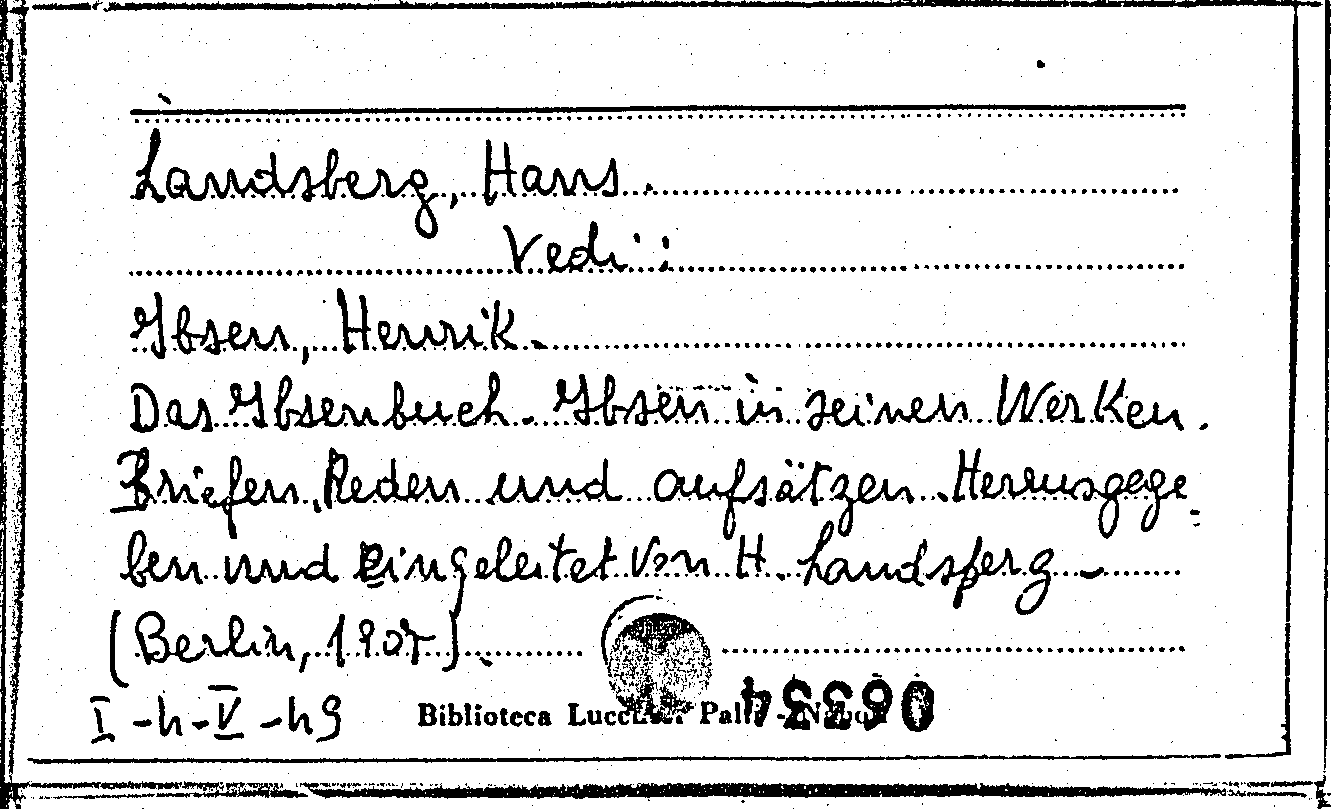 Landsberg, Hans.
Vedi:
Ibsen, Henrik.
Das Ibsenbuch. Ibsen in seinen Werken.
Briefen, Reden und aufsätzen. Herausgege
ben und eingeleitet von H. Landsperg.
(Berlin, 1907).
I-h-V-h9
Biblioteca Lucchesi Palli - Napoli